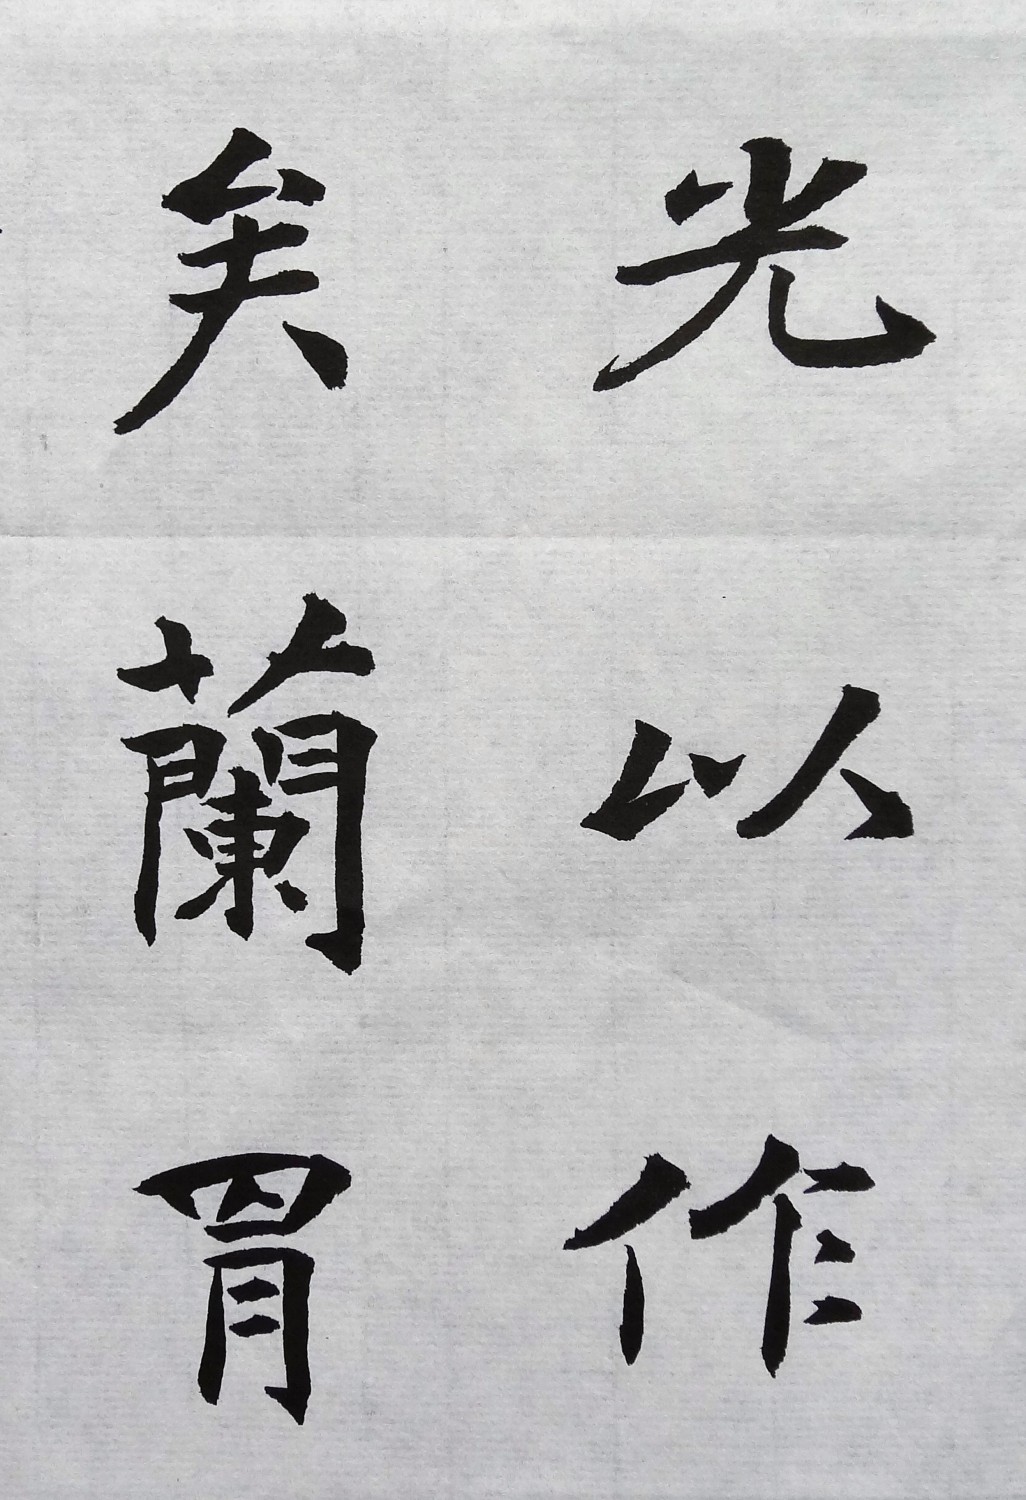 光以作
矣蘭胄